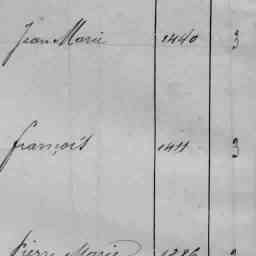 Jean Marie 1440 3
françois 1411 3
Pierre Marie 1286